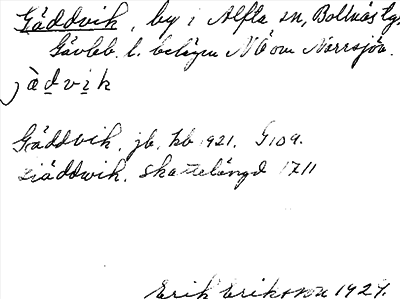 Gäddvik, by i Alfta sn, Bollnäs tg.
Gävleb. l. belägen NÖ om Norrsjön.
jà̀dvìk
Gäddvik, jb, kb 1921. G109.
Giäddwik. skattelängd 1711
Erik Eriksson 1927.